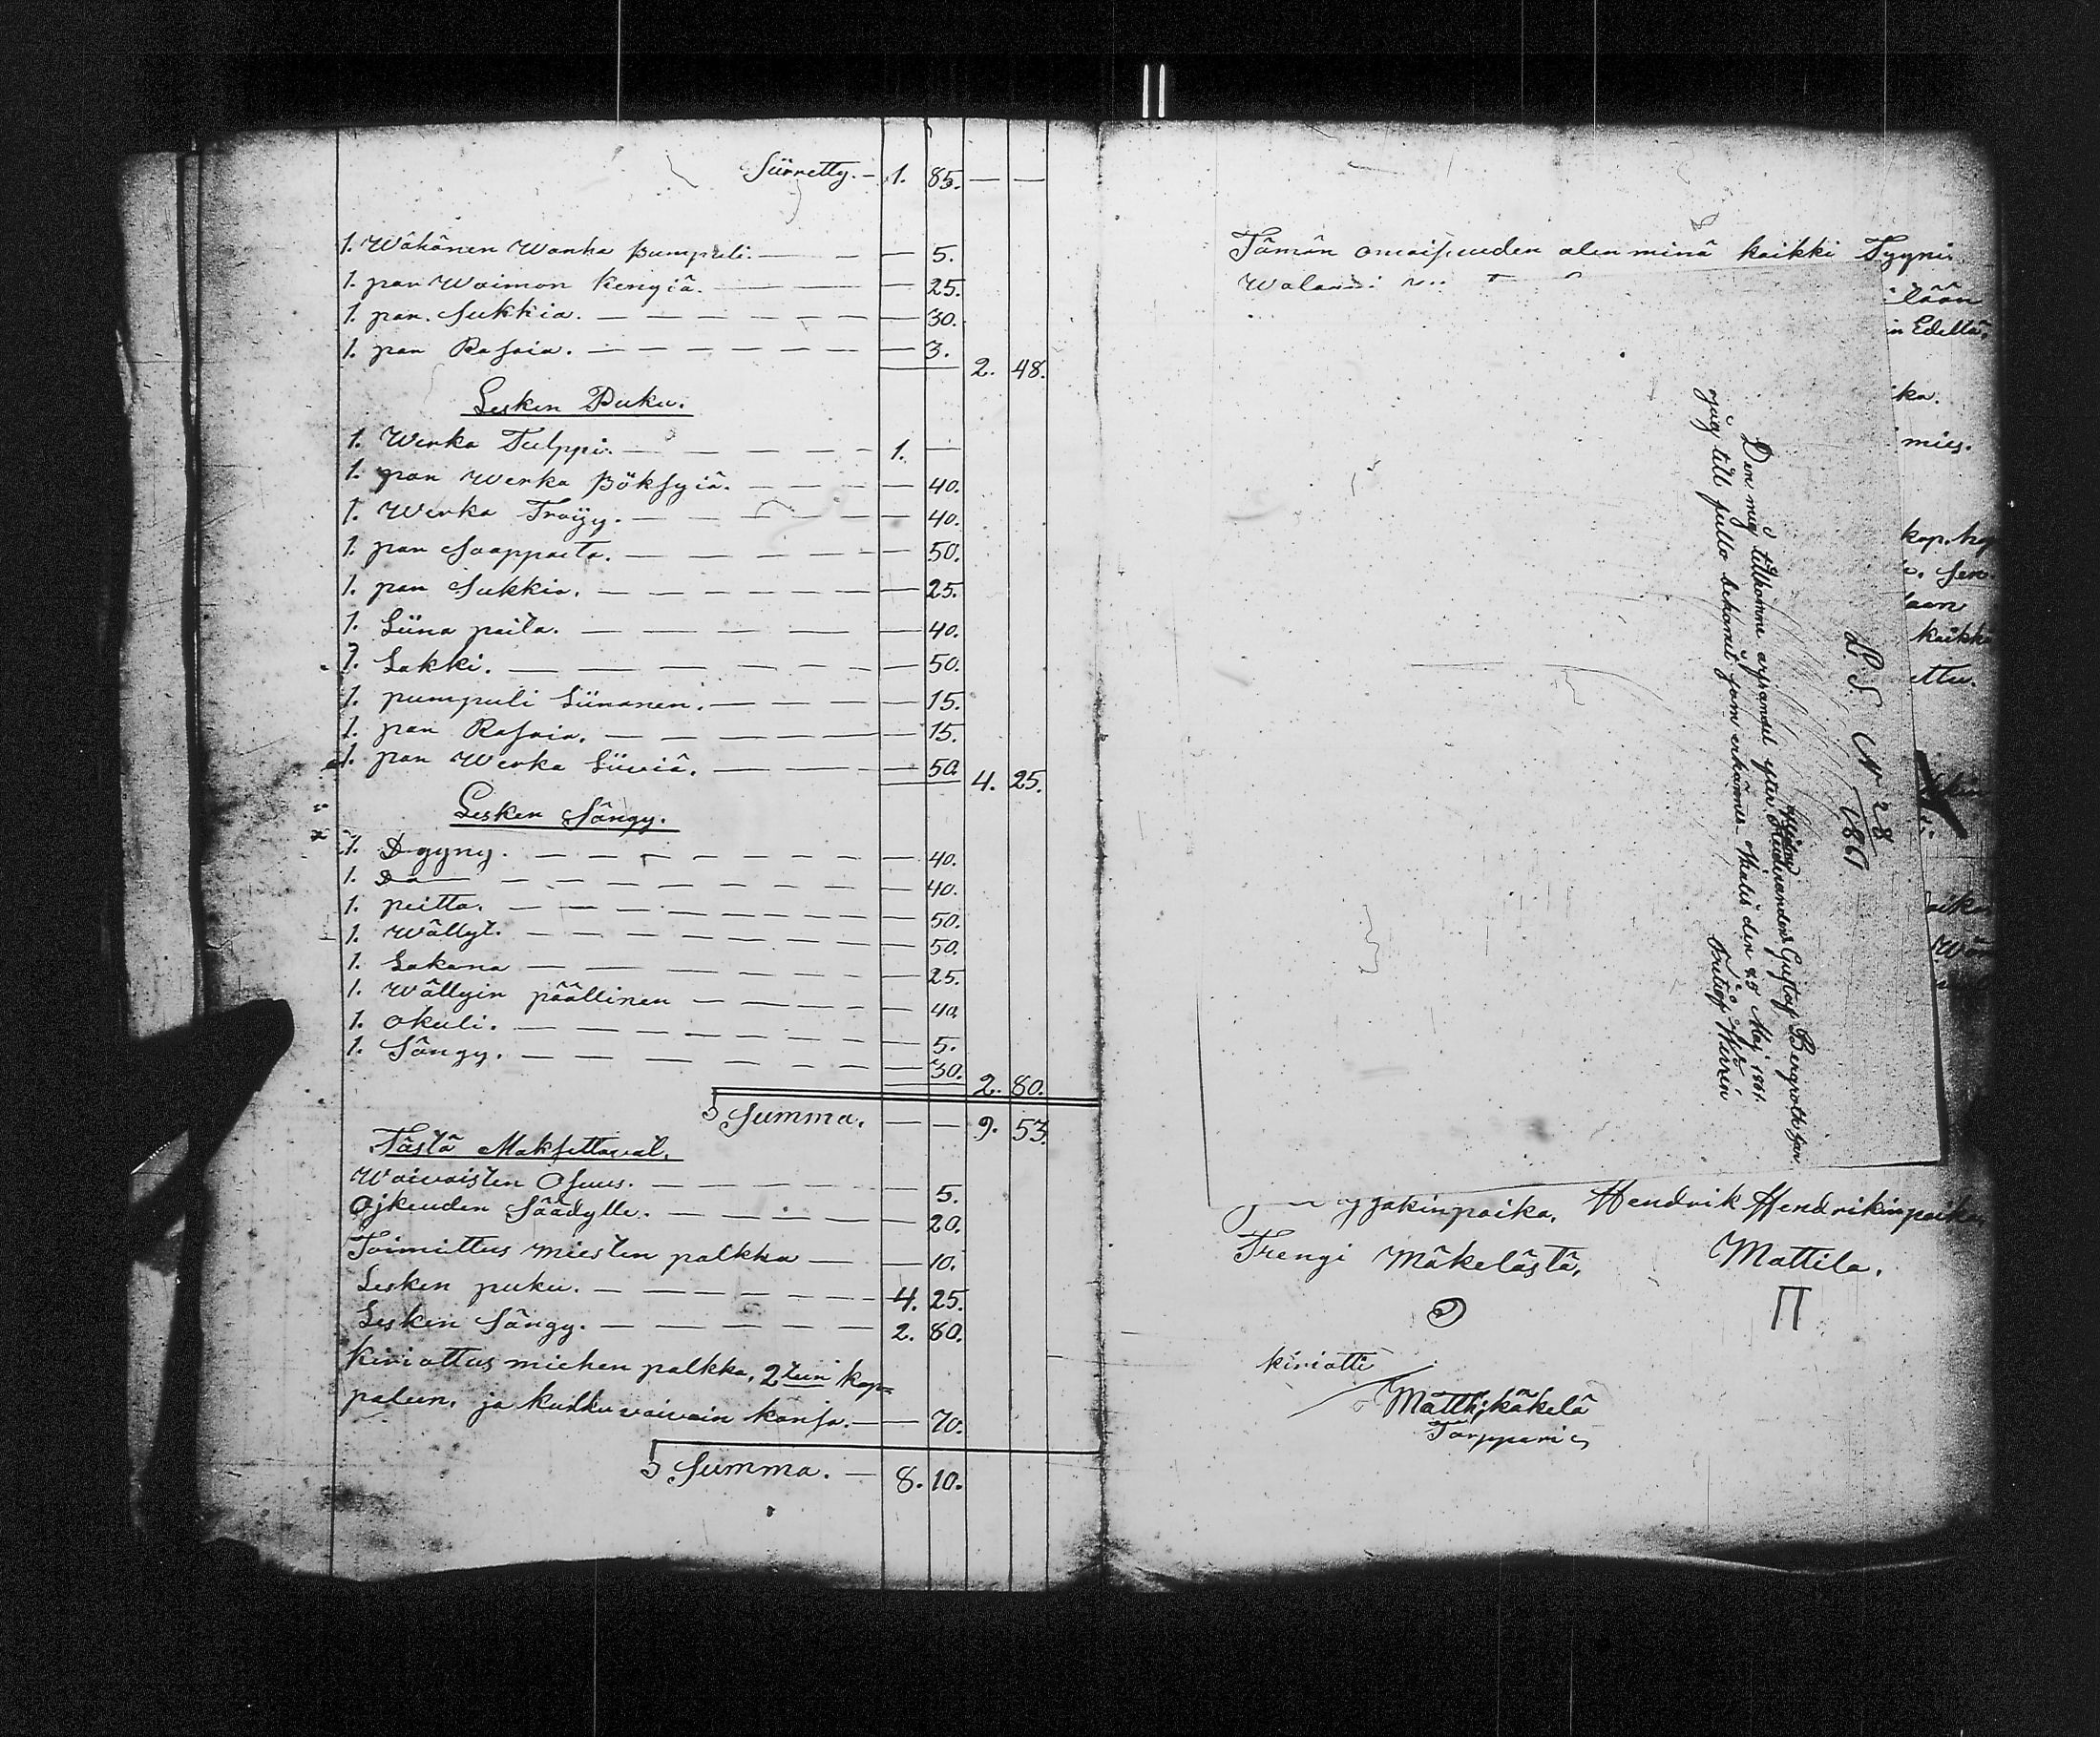 Siirretty. — 1. 85. — —
1. Wähänen Wanha pumpuli. — — — 5.
1. par Waimon kengiä. — — — 25.
1. par. Sukkia. — — — — 30.
1. par Rasaia. — — — — 3. 2. 48.
Lesken Puku.
1. Werka Tulppi. — — — — 1. —
1. par Werka Böksyiä. — — — 40.
1. Werka Tröijy. — — — — 40.
1. par Saappaita. — — — — 50.
1. par Sukkia. — — — — 25.
1. Liina paita. — — — — 40.
1. Lakki. — — — — 50.
1. pumpuli Liinanen. — — — 15.
1. par Rasaia. — — — — 15.
1. par Werka Liiviä. — — — 50. 4. 25.
Lesken Sängy.
1. Dyyny. — — — — 40.
1. Do — — — — 40.
1. peitto. — — — — 50.
1. Wällyt. — — — — 50.
1. Lakana — — — — 25.
1. Wällyin päällinen — — — 40.
1. okuli. — — — — 5.
1. Sängy. — — — — 30. 2. 80.
Summa. — — 9. 53.
Tästä Maksettavat.
Waivaisten Osuus. — — — — 5.
Ojkeuden Säädylle. — — — — 20.
Toimittus miesten palkka — — 10.
Lesken puku. — — — — 4. 25.
Lesken Sängy. — — — — 2. 80.
Kiriottus miehen palkka, 2 ten kap=
palein, ja kulku vaivain kansa. — — 70.
Summa. — 8. 10.
Tämän omaisuuden olen minä kaikki Tyyni
lään
in Edellä,
ka.
mies.
kap.
kaikki
ettu.
L. S. N 28
1861
Den mig tillkomne arfsandel efter Gustaf Bergroth har
jag till fullo bekommit som erkännes den 25 Maj 1861.
jakinpoika, Hendrik Hendrikinpoika
Trengi Mäkelästä, Mattila.
kiriotti
Matth: käkelä
Torppari